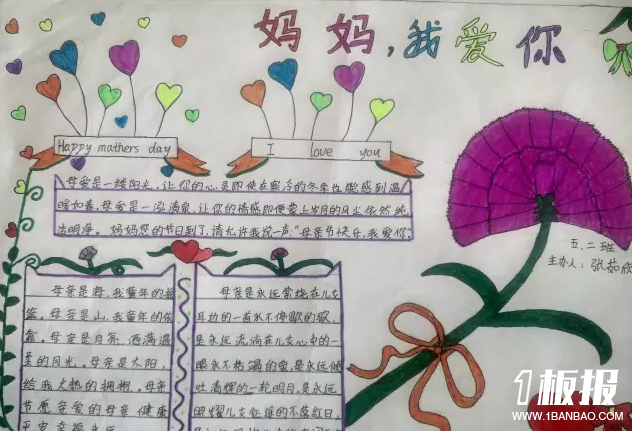 妈妈,我爱你
Happy mathers day
I love you
母爱是一缕阳光,让你的心灵即使在寒冷的冬季也能感到温
暖如春,母爱是一泓清泉,让你的情感即使蒙上岁月的风尘依然纯
洁明净。妈妈您的节日到了,请允许我说一声:"母亲节快乐,我爱你"
五、二班
主办人:张茹欣
母亲是海,我童年的摇
篮,母亲是山,我童年的依
靠,母亲是月亮,洒满温
柔的月光,母亲是太阳,
给我火热的拥抱,母亲
节愿亲爱的母亲健康
平安幸福永远
母亲是永远萦绕在儿女
耳边的一首永不停歇的歌,
是永远流淌在儿女心中的一
眼永不枯竭的泉,是永远倾
吐清辉的一轮明月,是永远
照耀儿女征途的不落红日,
1板报
WWW.1BANBAO.COM